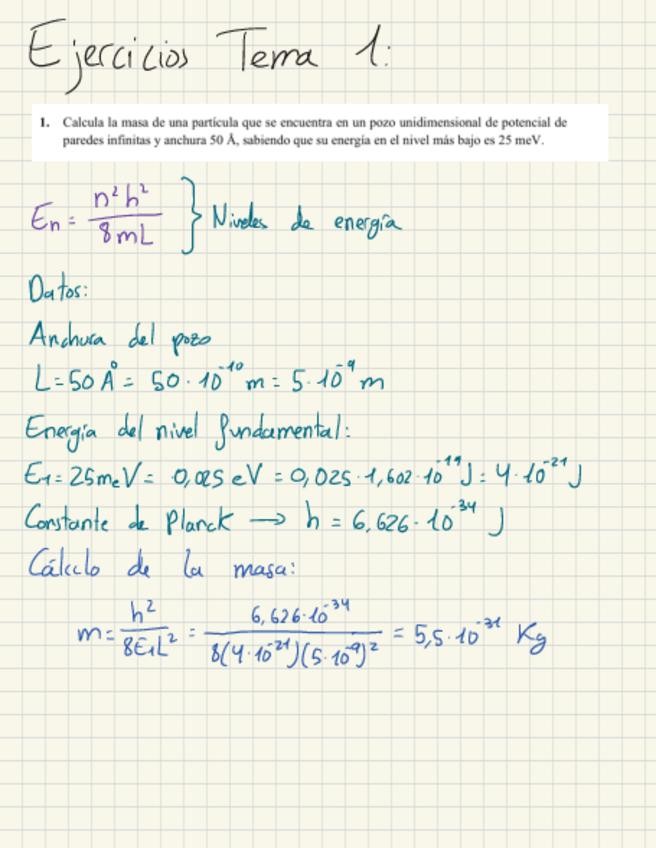 Ejercicios Tema 1:
1. Calcula la masa de una partícula que se encuentra en un pozo unidimensional de potencial de
paredes infinitas y anchura 50 Å, sabiendo que su energía en el nivel más bajo es 25 meV.
En = n²h² / 8mL } Niveles de energía
Datos:
Anchura del pozo
L = 50 Å = 50 · 10⁻¹⁰ m = 5 · 10⁻⁹ m
Energía del nivel fundamental:
E₁ = 25meV = 0,025 eV = 0,025 · 1,602 · 10⁻¹⁹ J = 4 · 10⁻²¹ J
Constante de Planck → h = 6,626 · 10⁻³⁴ J
Cálculo de la masa:
m = h² / 8E₁L² = 6,626 · 10⁻³⁴ / 8(4 · 10⁻²¹)(5 · 10⁻⁹)² = 5,5 · 10⁻³¹ Kg